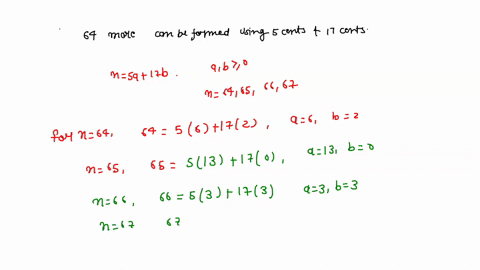 64 more can be formed using 5 cents + 17 cents.
n=5a+17b. a,b≥0
n=64,65, 66,67
for n=64, 64=5(6)+17(2), a=6, b=2
n=65, 65=5(13)+17(0), a=13, b=0
n=66, 66=5(3)+17(3) a=3, b=3
n=67 67